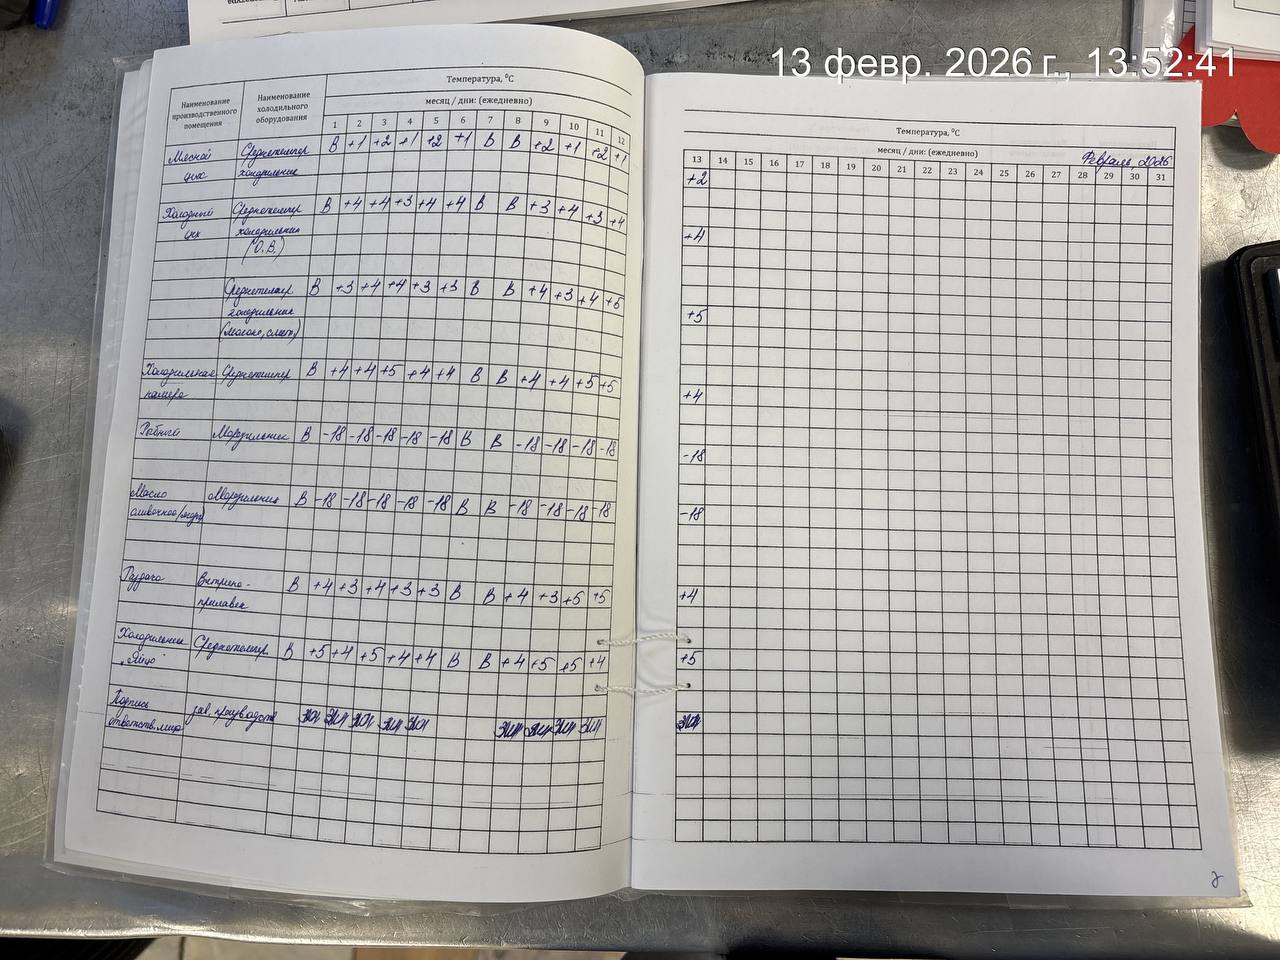 13 февр. 2026 г., 13:52:41
Наименование производственного помещения
Наименование холодильного оборудования
Температура, ⁰С
месяц / дни: (ежедневно)
1 2 3 4 5 6 7 8 9 10 11 12
Мясной цех Среднетемпер холодильник В +1 +2 +1 +2 +1 В В +2 +1 +2 +1
Холодный цех Среднетемпер холодильник (О.В.) В +4 +4 +3 +4 +4 В В +3 +4 +3 +4
Среднетемпер холодильник (молоко, смет) В +3 +4 +4 +3 +3 В В +4 +3 +4 +5
Холодильная камера Среднетемпер В +4 +4 +5 +4 +4 В В +4 +4 +5 +5
Рыбный Морозильник В -18 -18 -18 -18 -18 В В -18 -18 -18 -18
Масло сливочное Морозильник В -18 -18 -18 -18 -18 В В -18 -18 -18 -18
Раздача Витрина-прилавок В +4 +3 +4 +3 +3 В В +4 +3 +5 +5
Холодильник "Яйцо" Среднетемпер В +5 +4 +5 +4 +4 В В +4 +5 +5 +4
Подпись ответств. лица зав. производств
Температура, ⁰С
месяц / дни: (ежедневно) Февраль 2026
13 14 15 16 17 18 19 20 21 22 23 24 25 26 27 28 29 30 31
+2
+4
+5
+4
-18
-18
+4
+5
2